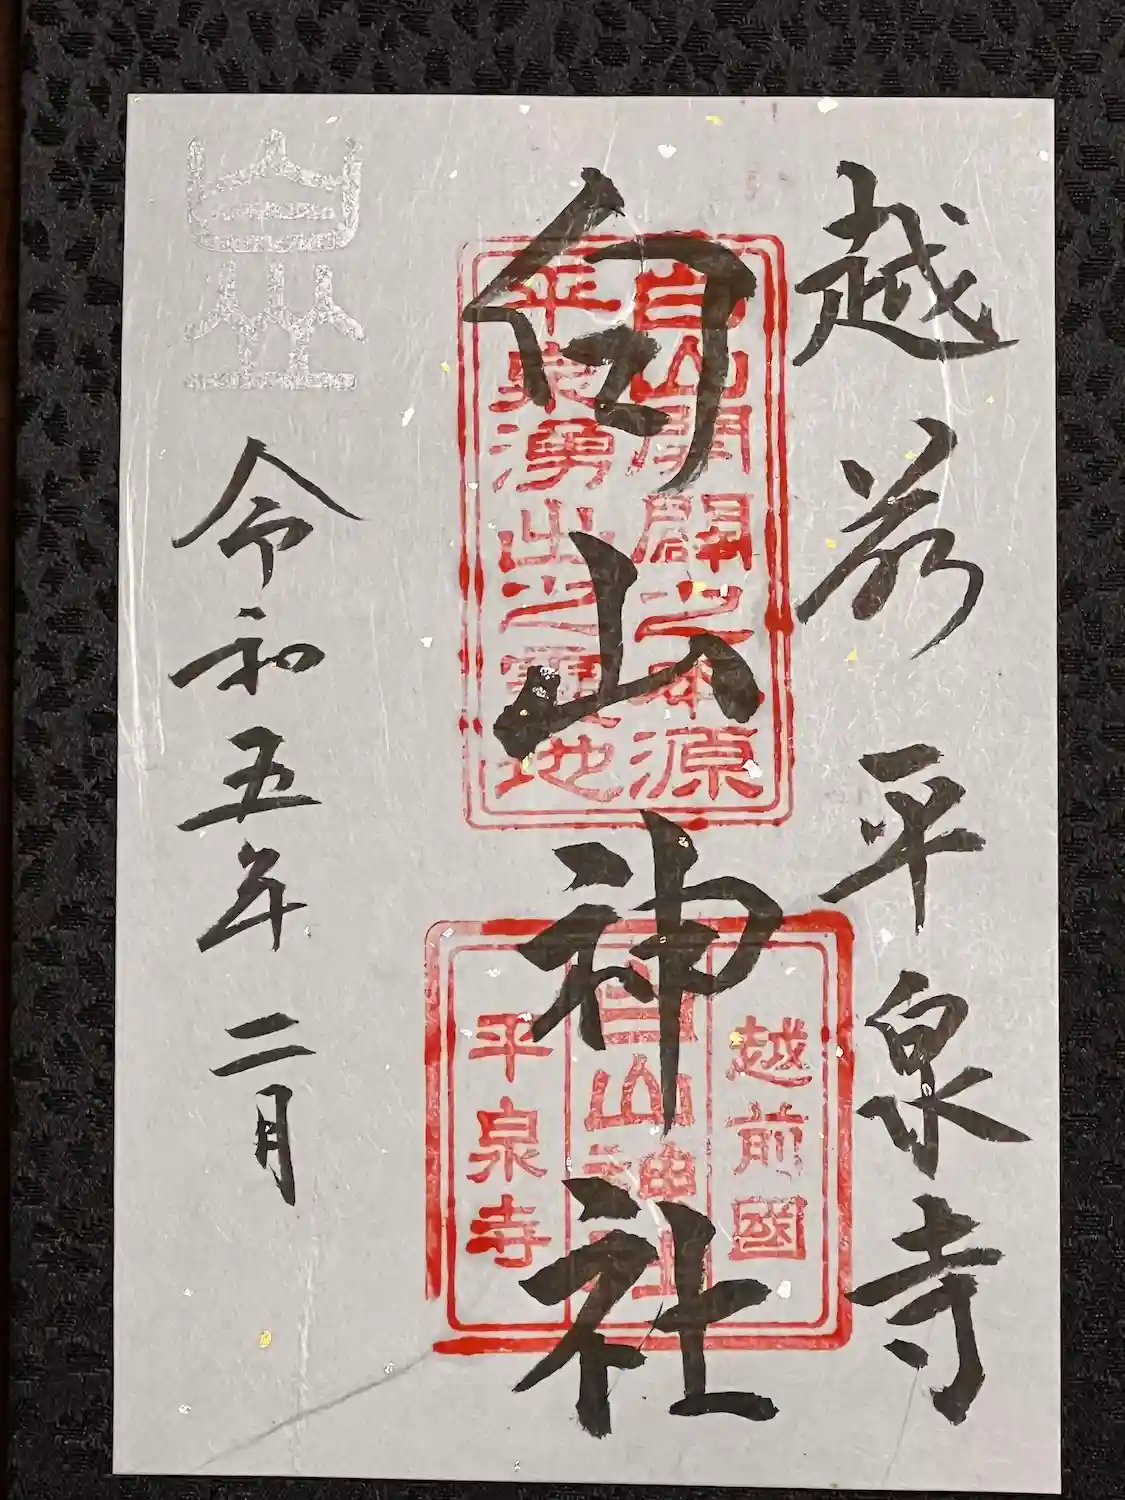 越前 平泉寺
白山神社
令和五年二月
白山開闢之本源
平泉湧出之靈地
越前國
白山神社
平泉寺